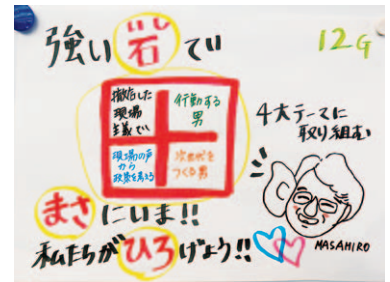 強い岩で
12G
徹底した
現場
主義で
行動する
男
現場の声
から
政策を考える
次世代を
つくる男
4大テーマに
取り組む
まさにいま!!
私たちがひろげよう!!
MASAHIRO